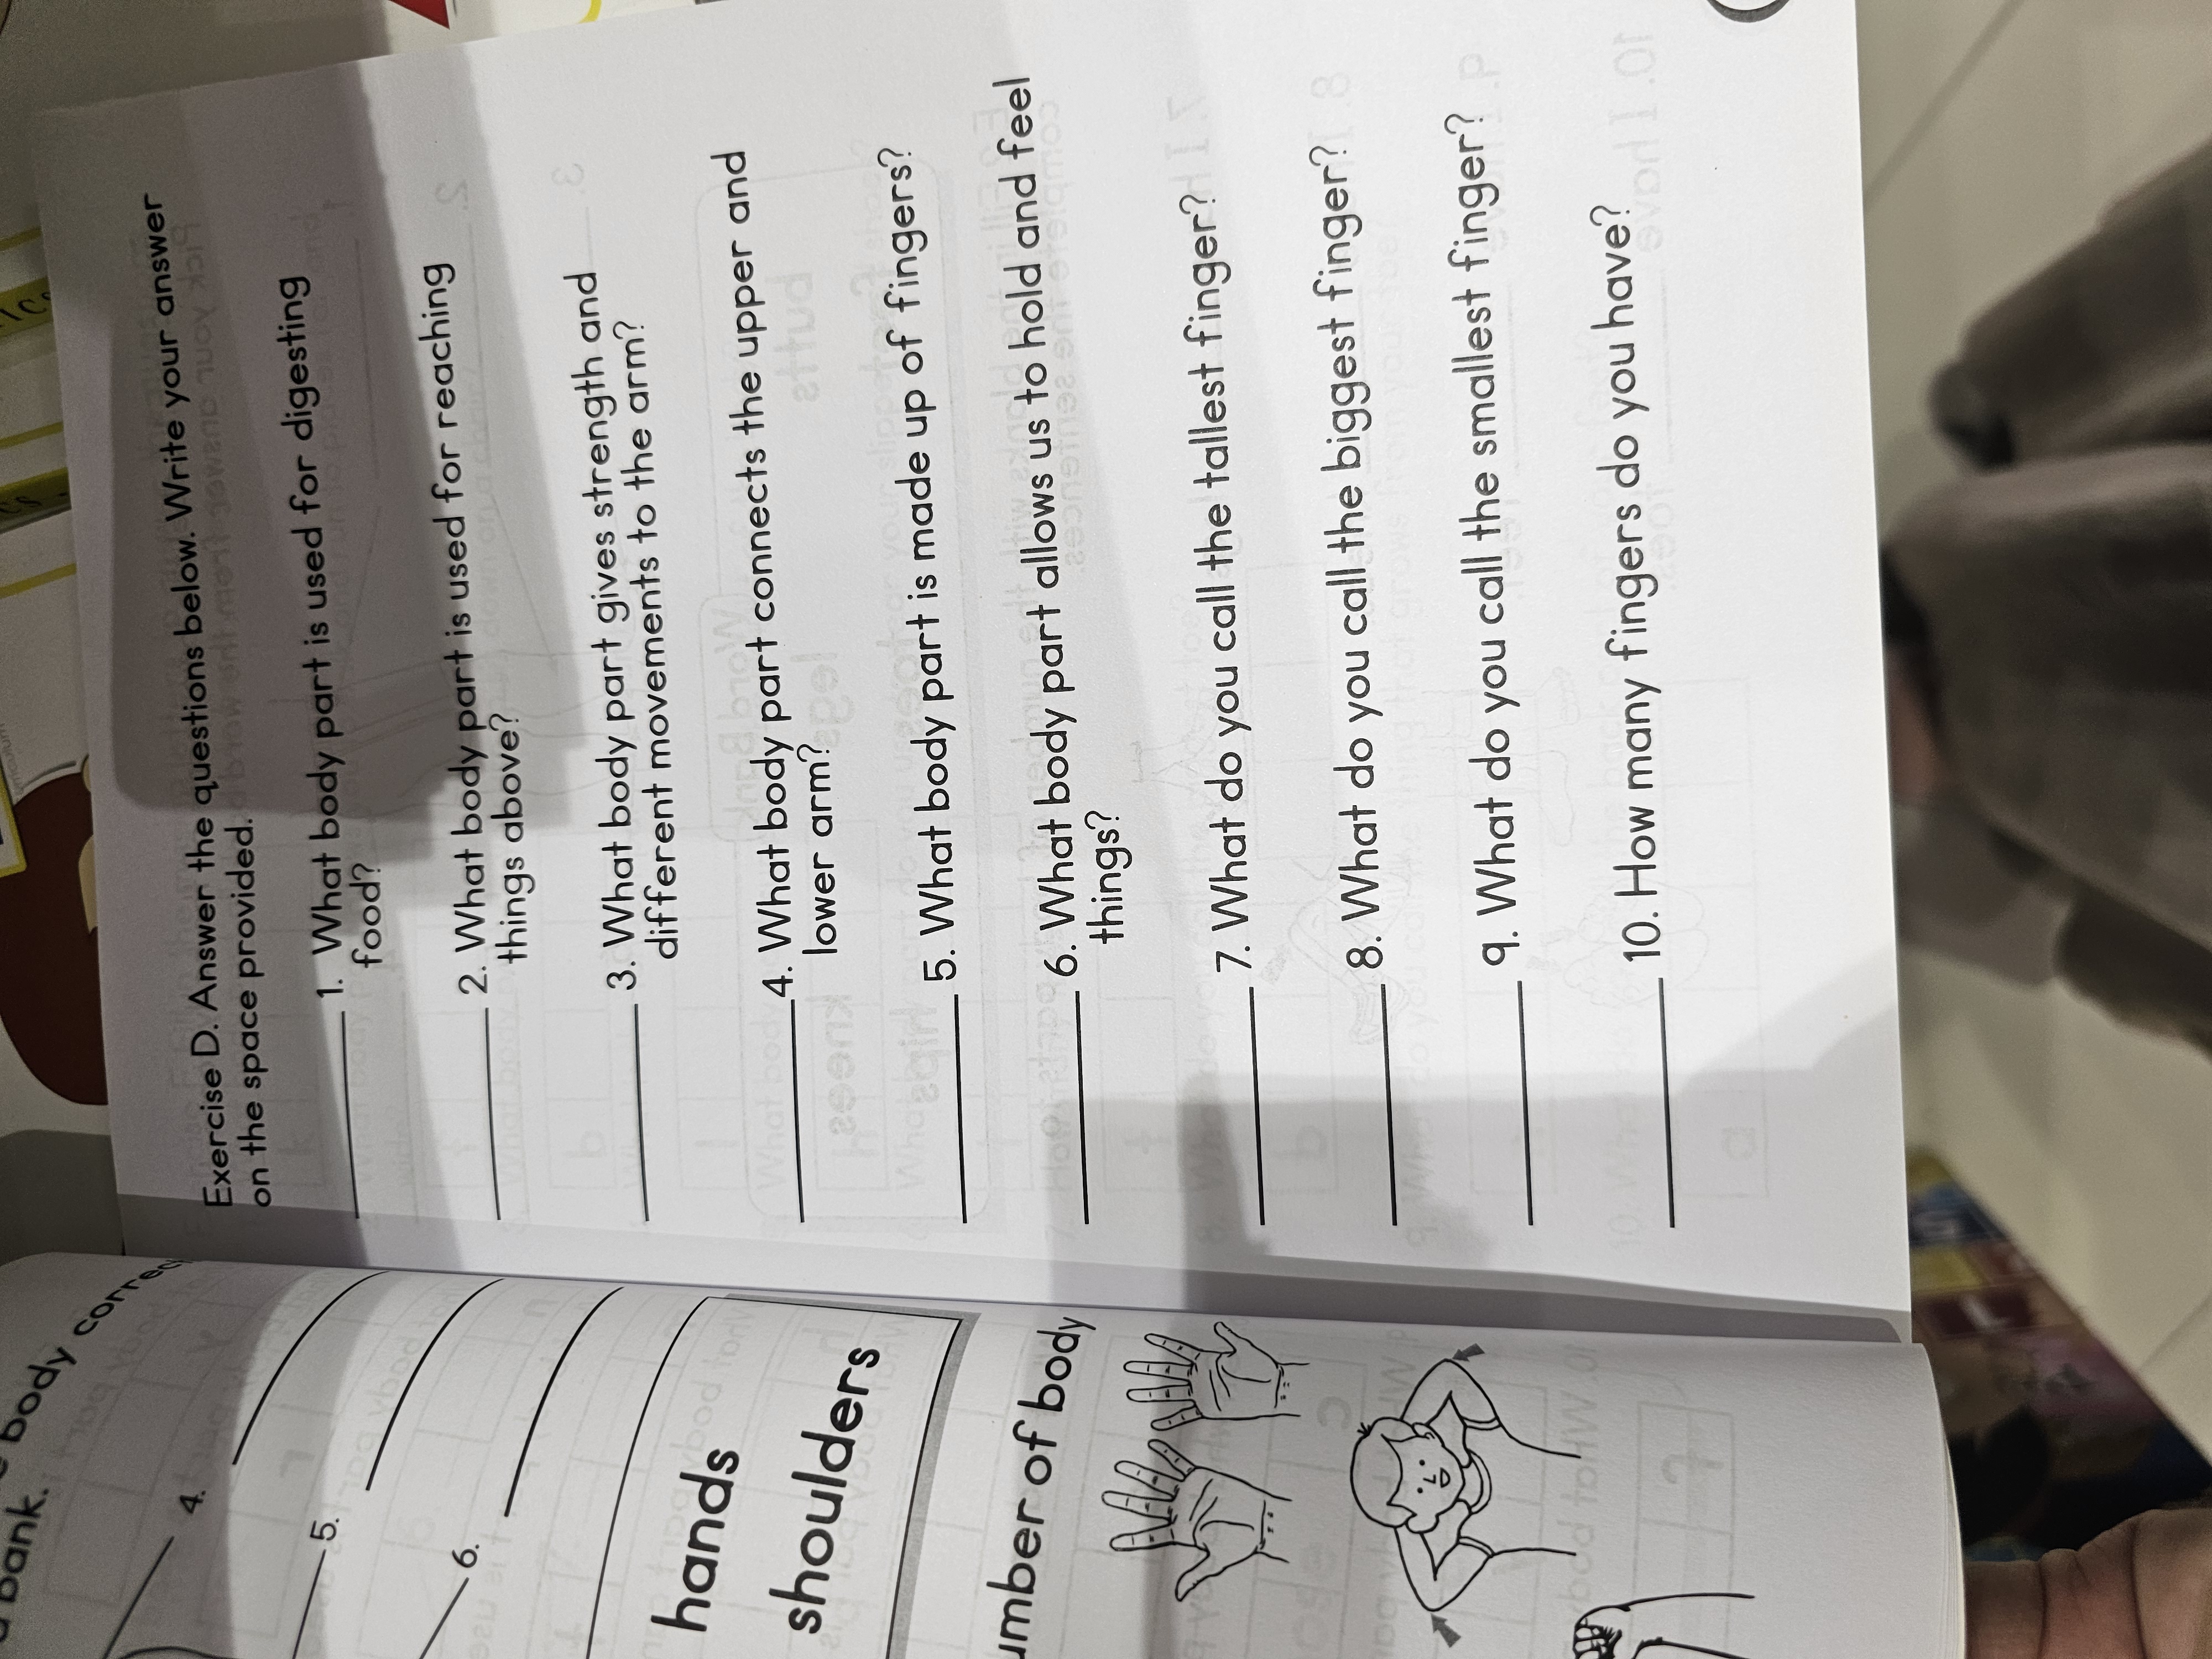 Exercise D. Answer the questions below. Write your answer
on the space provided.
1. What body part is used for digesting
food?
2. What body part is used for reaching
things above?
3. What body part gives strength and
different movements to the arm?
4. What body part connects the upper and
lower arm?
5. What body part is made up of fingers?
6. What body part allows us to hold and feel
things?
7. What do you call the tallest finger?
8. What do you call the biggest finger?
9. What do you call the smallest finger?
10. How many fingers do you have?
body
bank.
4.
5.
6.
hands
shoulders
of body